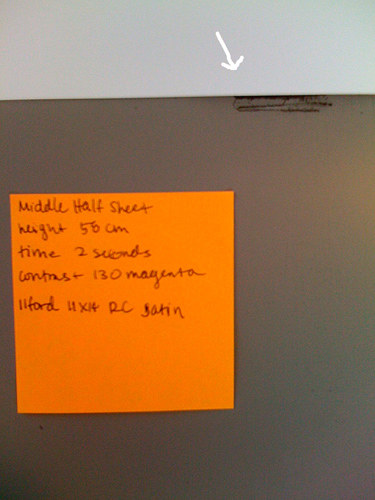 Middle Half Sheet
height 56 cm
time 2 seconds
contrast 130 magenta
Ilford 11x14 RC Satin